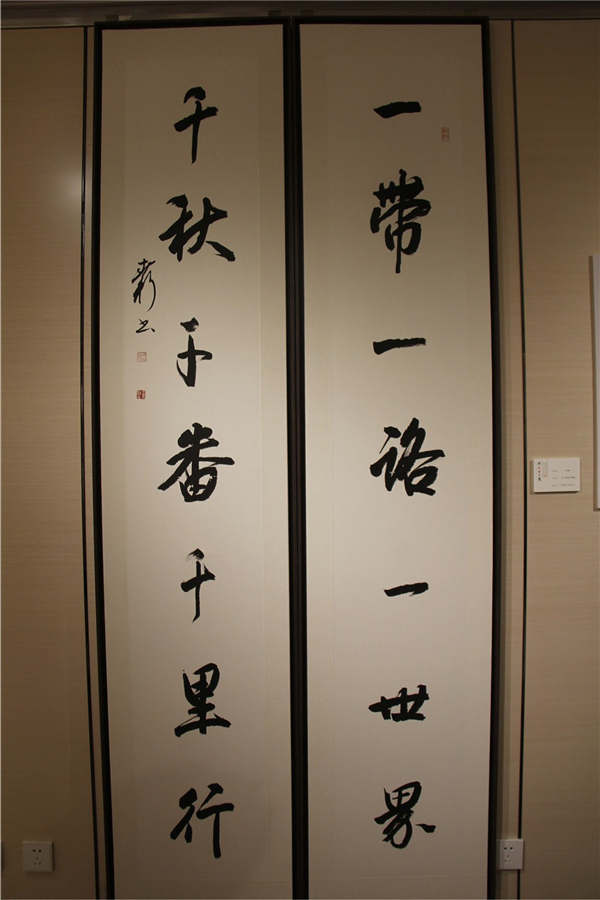 一帶一路一世界
千秋千番千里行
书